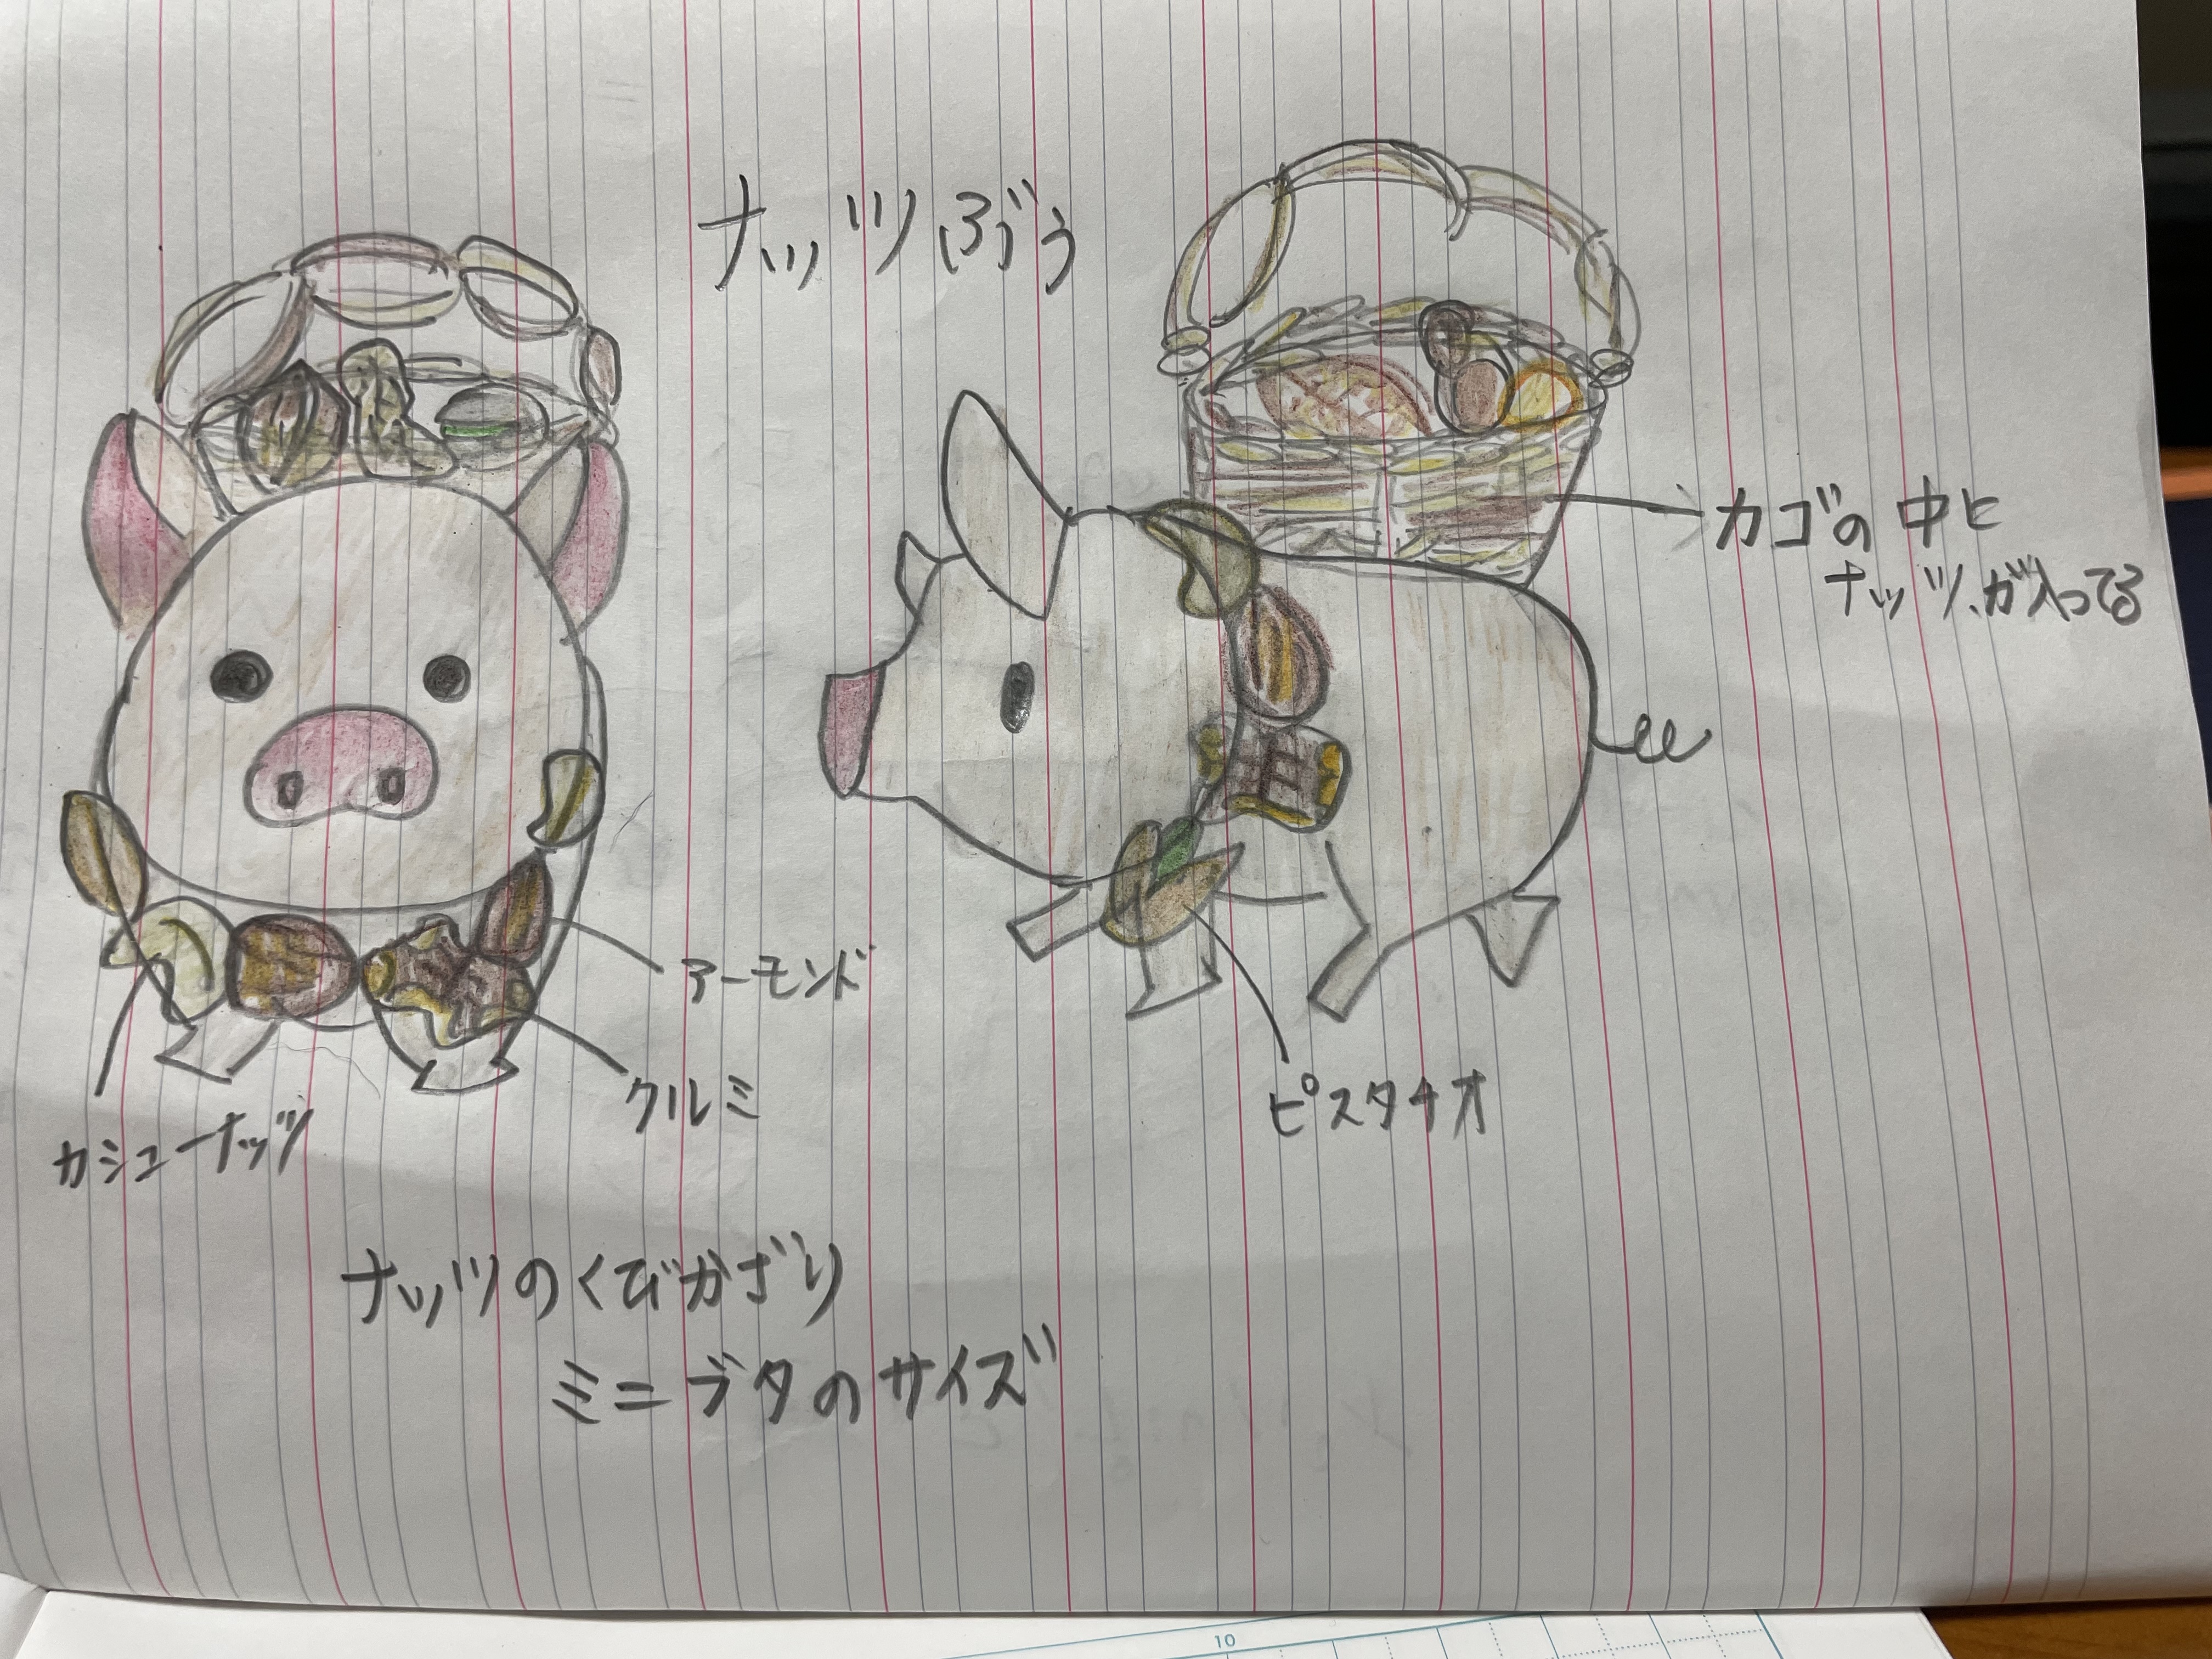 ナッツぶう
カゴの中に
ナッツが入ってる
アーモンド
クルミ
カシューナッツ
ピスタチオ
ナッツのくびかざり
ミニブタのサイズ
10